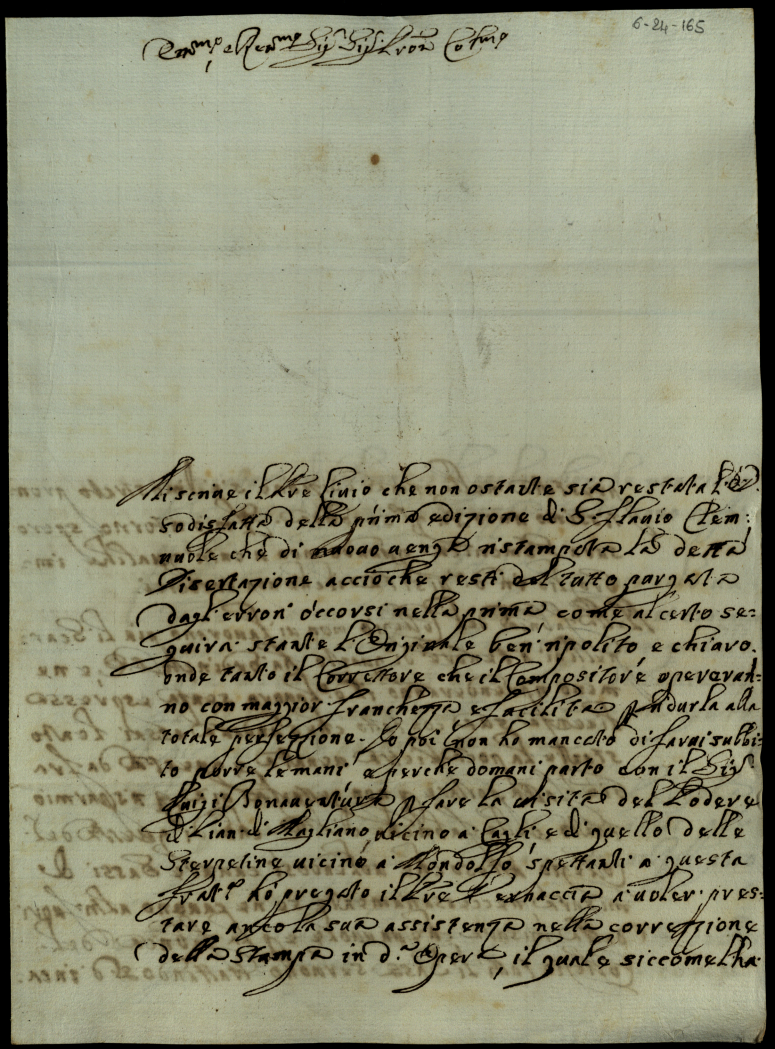 6-24-165
Emmo e Revmo Sig.r Sig.r Pron Colmo
Mi scrive il Pre Livio che non ostante sia restata l'
sodisfatta della prima edizione di S. Flavio Clem:
vuole che di nuovo venga ristampata la detta
Disertazione accioche resti del tutto purgata
dagl'errori occorsi nella prima come al certo se=
guirà stante l'Originale ben ripolito e chiaro.
onde tanto il Correttore che il Compositore opereran=
no con maggior franchezza e facilità p ridurla alla
totale perfezzione. Io poi non ho mancato di farvi subbi=
to porre le mani e perche domani parto con il Sig.r
Luigi Bonaventura p fare la visita del Podere
di Pian di Magliano vicino a Cagli e di quello delle
Sterpetine vicino a Mondolfo spettanti a questa
frat.a hò pregato il Pre Vernaccia a voler pres=
tare ancò la sua assistenza nella correzzione
della stampa in d.a Opera, il quale siccome l'ha